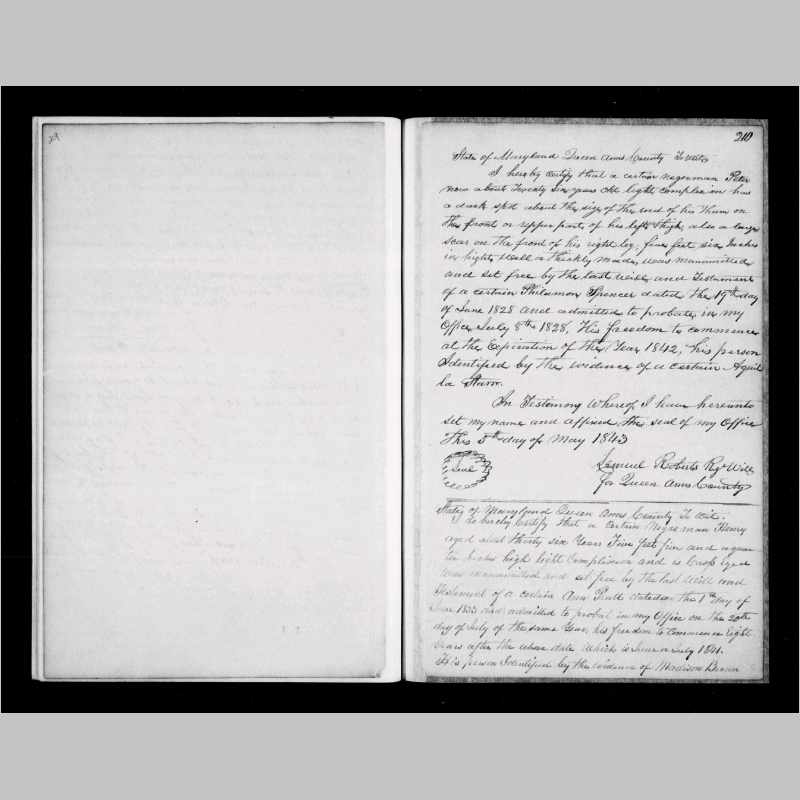 210
State of Maryland Queen Anns County To wit;
I hereby certify that a certain negro man Peter
now about Twenty Six years old light complexion has
a dark spot about the size of the end of his Thum on
the front or upper part of his left thigh, also a large
scar on the front of his right leg, five feet six Inches
in hight, well & thickly made, was manumitted
and set free by the last will and Testament
of a certain Philamon Spencer dated the 19th day
of June 1828 and admitted to probate in my
Office July 8th 1828, His freedom to commence
at the Expiration of the Year 1842, his person
Identified by the evidence of a certain Aquil
la Starr.
In Testimony Whereof I have hereunto
set my name and affixed the seal of my Office
This 5th day of May 1843
Seal
Samuel Roberts Rgr Wills
for Queen Anns County
State of Maryland Queen Anns County To Wit.
I do hereby Certify that a certain Negro man Henry
aged about thirty six Years Five feet five and
inches high light Complexion and is Cross Eyed
was manumitted and set free by the last Will and
Testament of a certain Ann dated on the 1st day of
June 1833 and admitted to probat in my Office on the 20th
day of July of the same Year, his freedom to Commence Eight
Years after the above date which is June or July 1841.
His person Identified by the evidence of Madison Brown